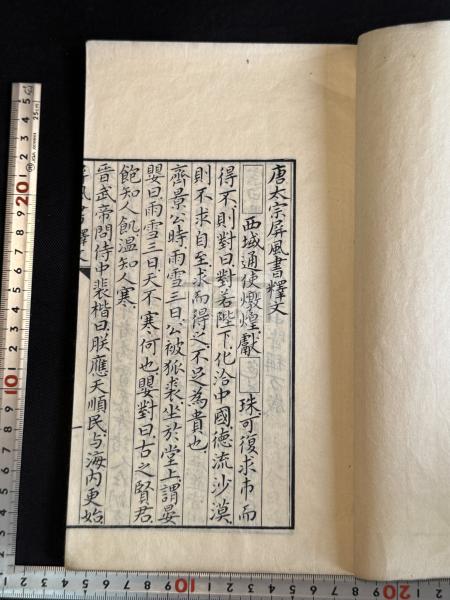 唐太宗屏風書釋文
西域通使燉煌獻 珠可復求市而
得不則對曰對若陛下化洽中國德流沙漠
則不求自至求而得之不足為貴也
齊景公時雨雪三日公被狐裘坐於堂上謂晏
嬰曰雨雪三日天不寒何也嬰對曰古之賢君
飽知人飢溫知人寒
晉武帝問侍中裴楷曰朕應天順民与海內更始